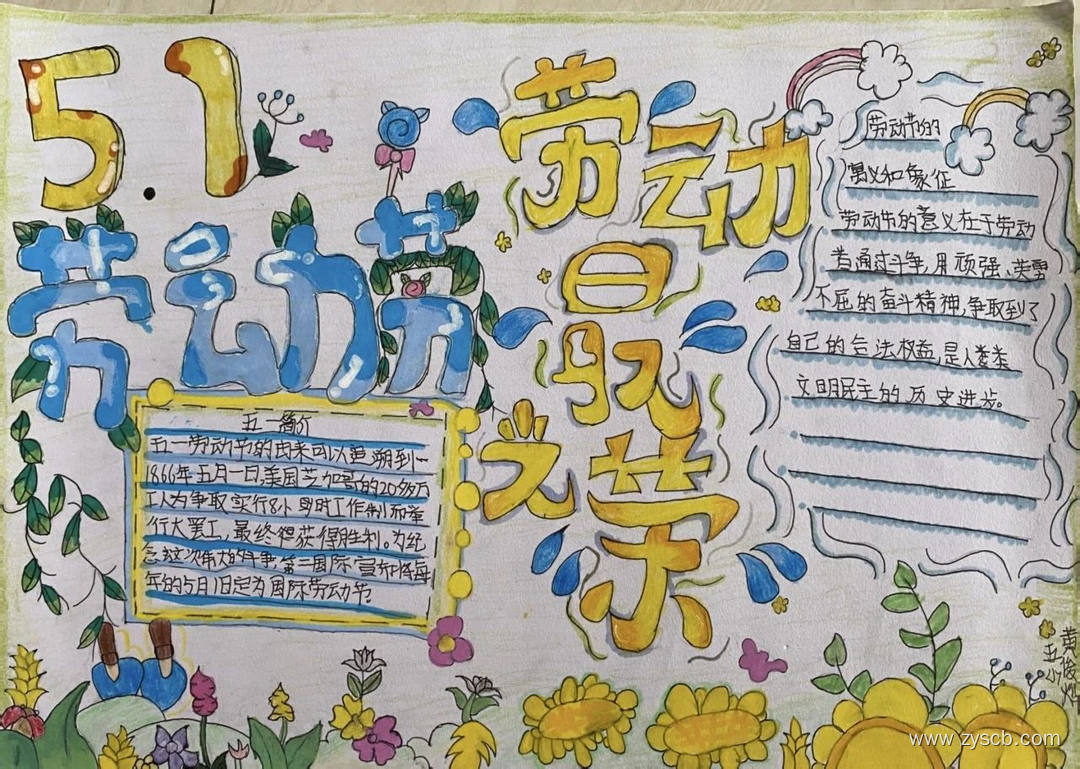 5.1
劳动节
劳动
最
光荣
五一简介
五一劳动节的由来可以追溯到一
1866年五月一日,美国芝加哥的20多万
工人为争取实行8小时工作制而举
行大罢工,最终得获得胜利。为纪
念这次伟大的,第二国际宣布将每
年的5月1日定为国际劳动节。
劳动节的
寓义和象征
劳动节的意义在于劳动
普通过斗争,用顽强、英勇
不屈的奋斗精神,争取到了
自己的合法权益,是人类
文明民主的历史进步。
黄俊
五
www.zyscb.com